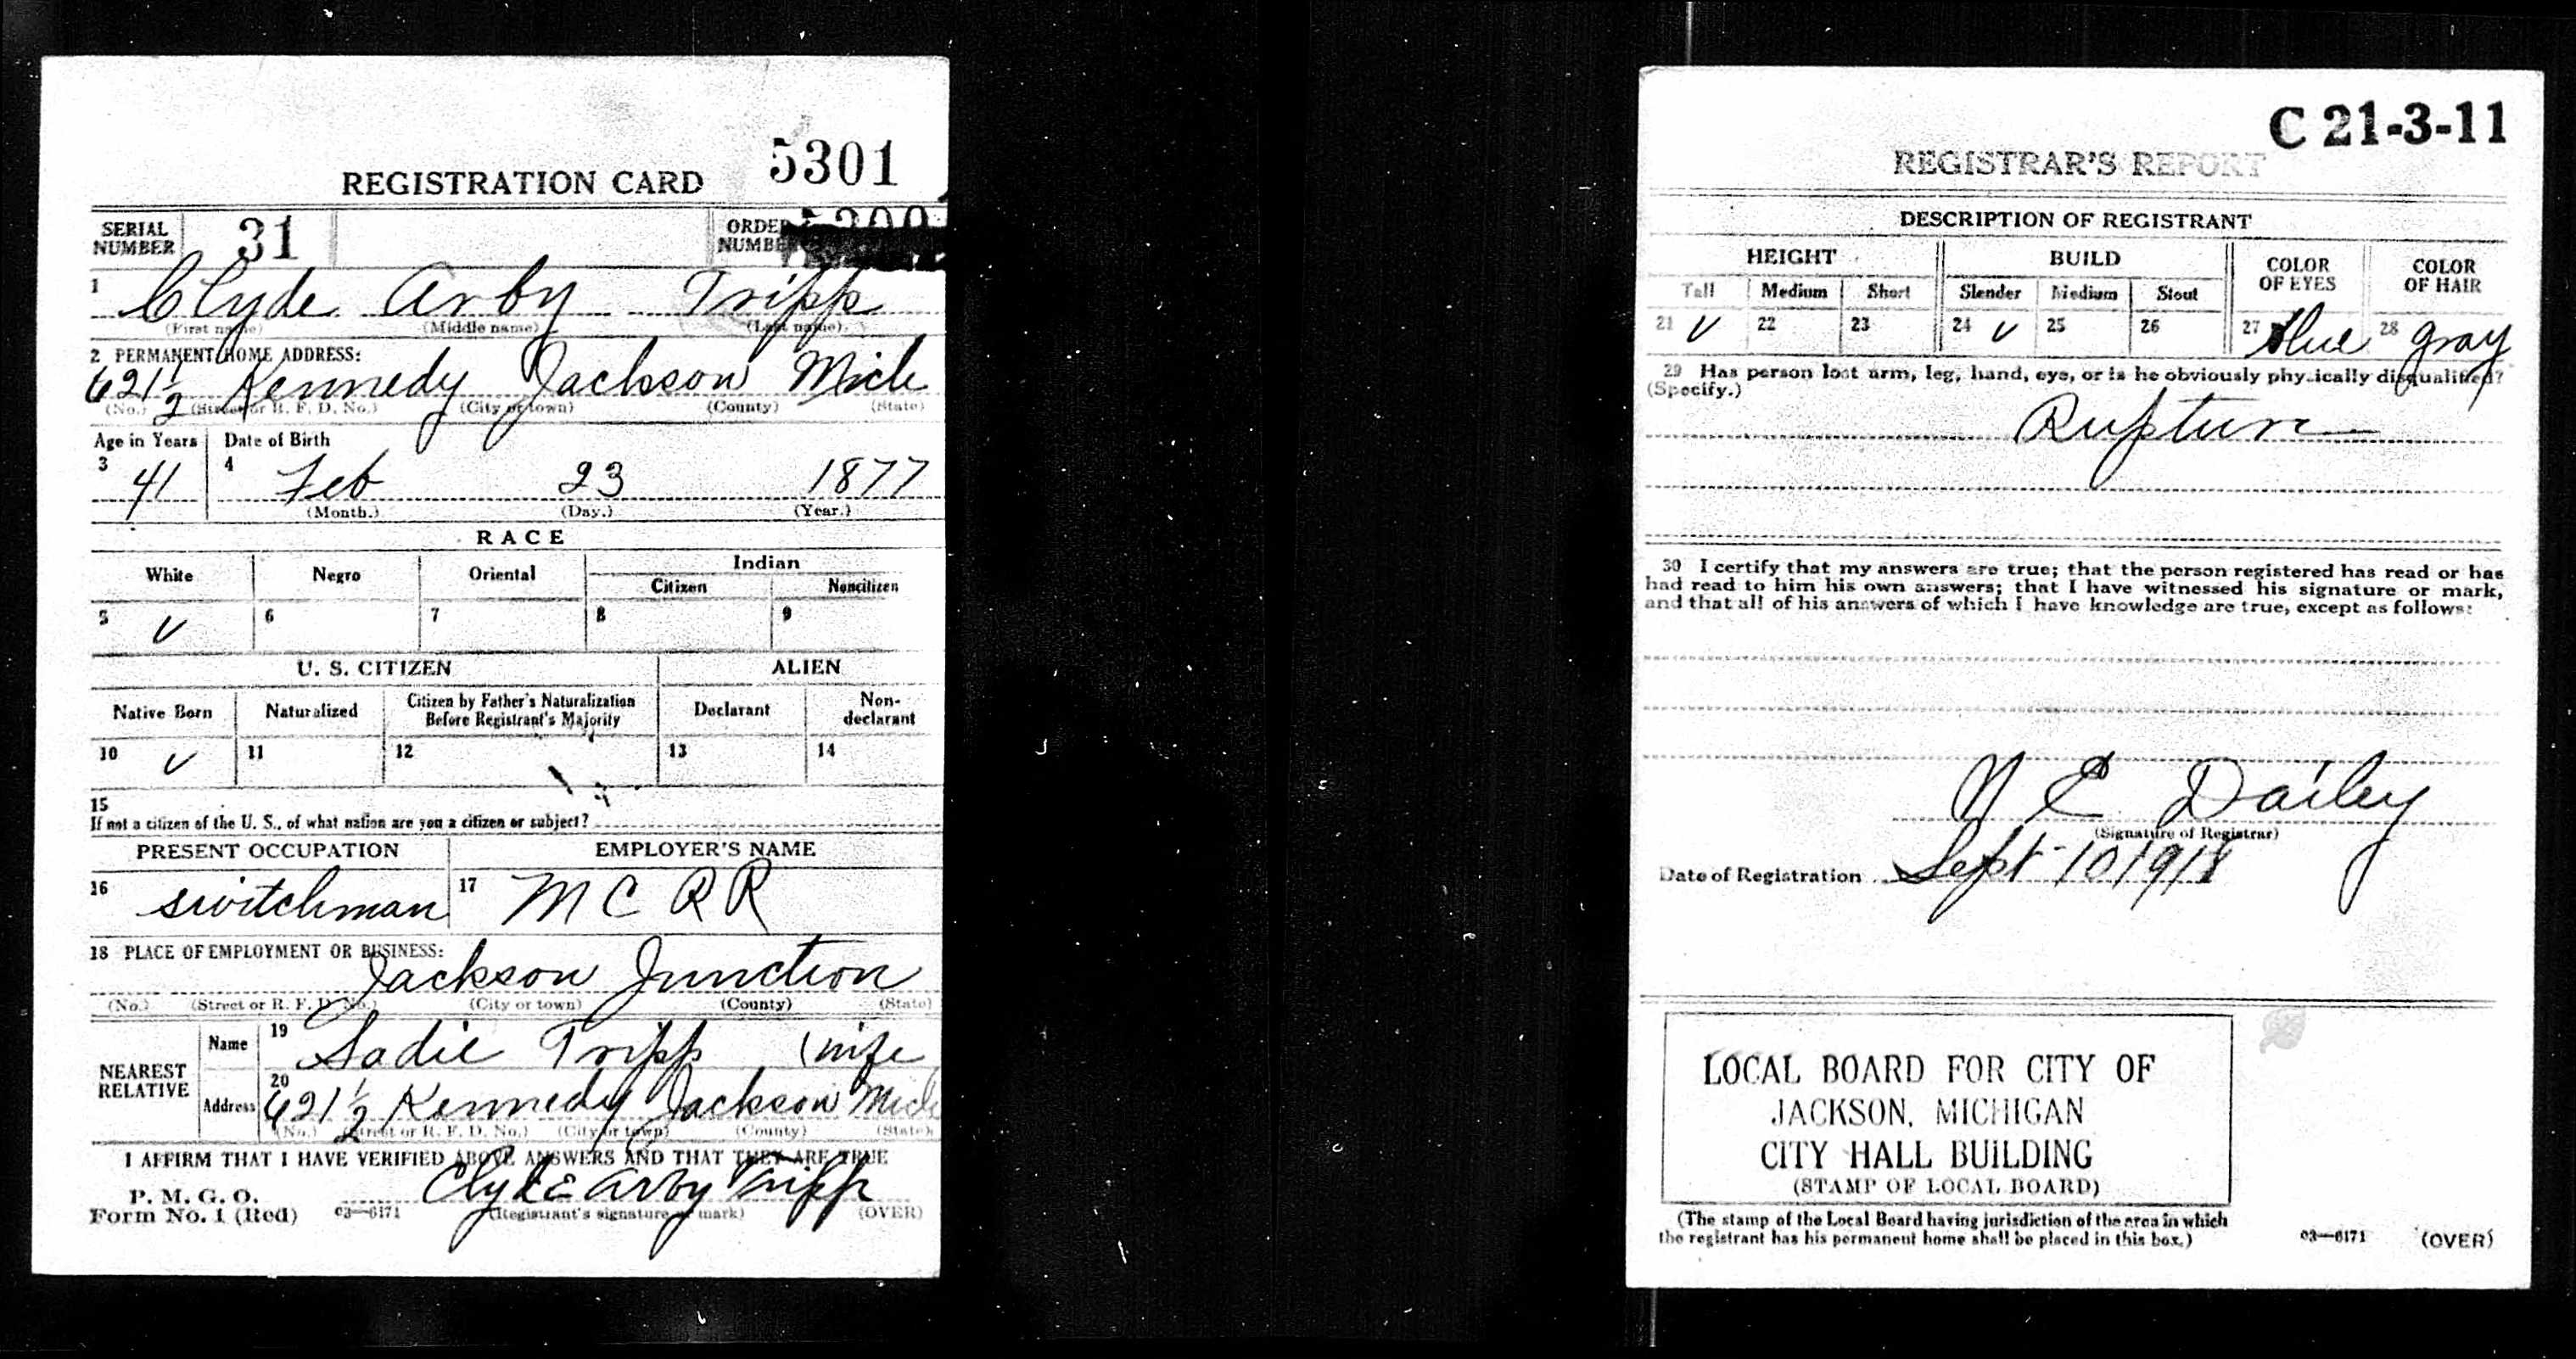 5301
REGISTRATION CARD
SERIAL NUMBER 31 ORDER NUMBER
1 Clyde Arby Tripp
(First name) (Middle name) (Last name)
2 PERMANENT HOME ADDRESS:
621½ Kennedy Jackson Mich
(No.) (Street or R. F. D. No.) (City or town) (County) (State)
Age in Years Date of Birth
3 41 4 Feb 23 1877
(Month.) (Day.) (Year.)
RACE
White Negro Oriental Indian
Citizen Noncitizen
5 ✓ 6 7 8 9
U. S. CITIZEN ALIEN
Native Born Naturalized Citizen by Father's Naturalization Before Registrant's Majority Declarant Non-declarant
10 ✓ 11 12 13 14
15
If not a citizen of the U. S., of what nation are you a citizen or subject?
PRESENT OCCUPATION EMPLOYER'S NAME
16 switchman 17 M C R R
18 PLACE OF EMPLOYMENT OR BUSINESS:
Jackson Junction
(No.) (Street or R. F. D. No.) (City or town) (County) (State)
NEAREST RELATIVE
Name 19 Sadie Tripp (wife
Address 20 621½ Kennedy Jackson Mich
(No.) (Street or R. F. D. No.) (City or town) (County) (State)
I AFFIRM THAT I HAVE VERIFIED ABOVE ANSWERS AND THAT THEY ARE TRUE
P. M. G. O.
Form No. 1 (Red) 03—6171 Clyde Arby Tripp
(Registrant's signature or mark) (OVER)
C 21-3-11
REGISTRAR'S REPORT
DESCRIPTION OF REGISTRANT
HEIGHT BUILD COLOR OF EYES COLOR OF HAIR
Tall Medium Short Slender Medium Stout
21 ✓ 22 23 24 ✓ 25 26 27 Blue 28 gray
29 Has person lost arm, leg, hand, eye, or is he obviously physically disqualified?
(Specify.)
Rupture
30 I certify that my answers are true; that the person registered has read or has
had read to him his own answers; that I have witnessed his signature or mark,
and that all of his answers of which I have knowledge are true, except as follows:
E Dailey
(Signature of Registrar)
Date of Registration Sept 10 1918
LOCAL BOARD FOR CITY OF
JACKSON, MICHIGAN
CITY HALL BUILDING
(STAMP OF LOCAL BOARD)
(The stamp of the Local Board having jurisdiction of the area in which
the registrant has his permanent home shall be placed in this box.)
03—6171 (OVER)